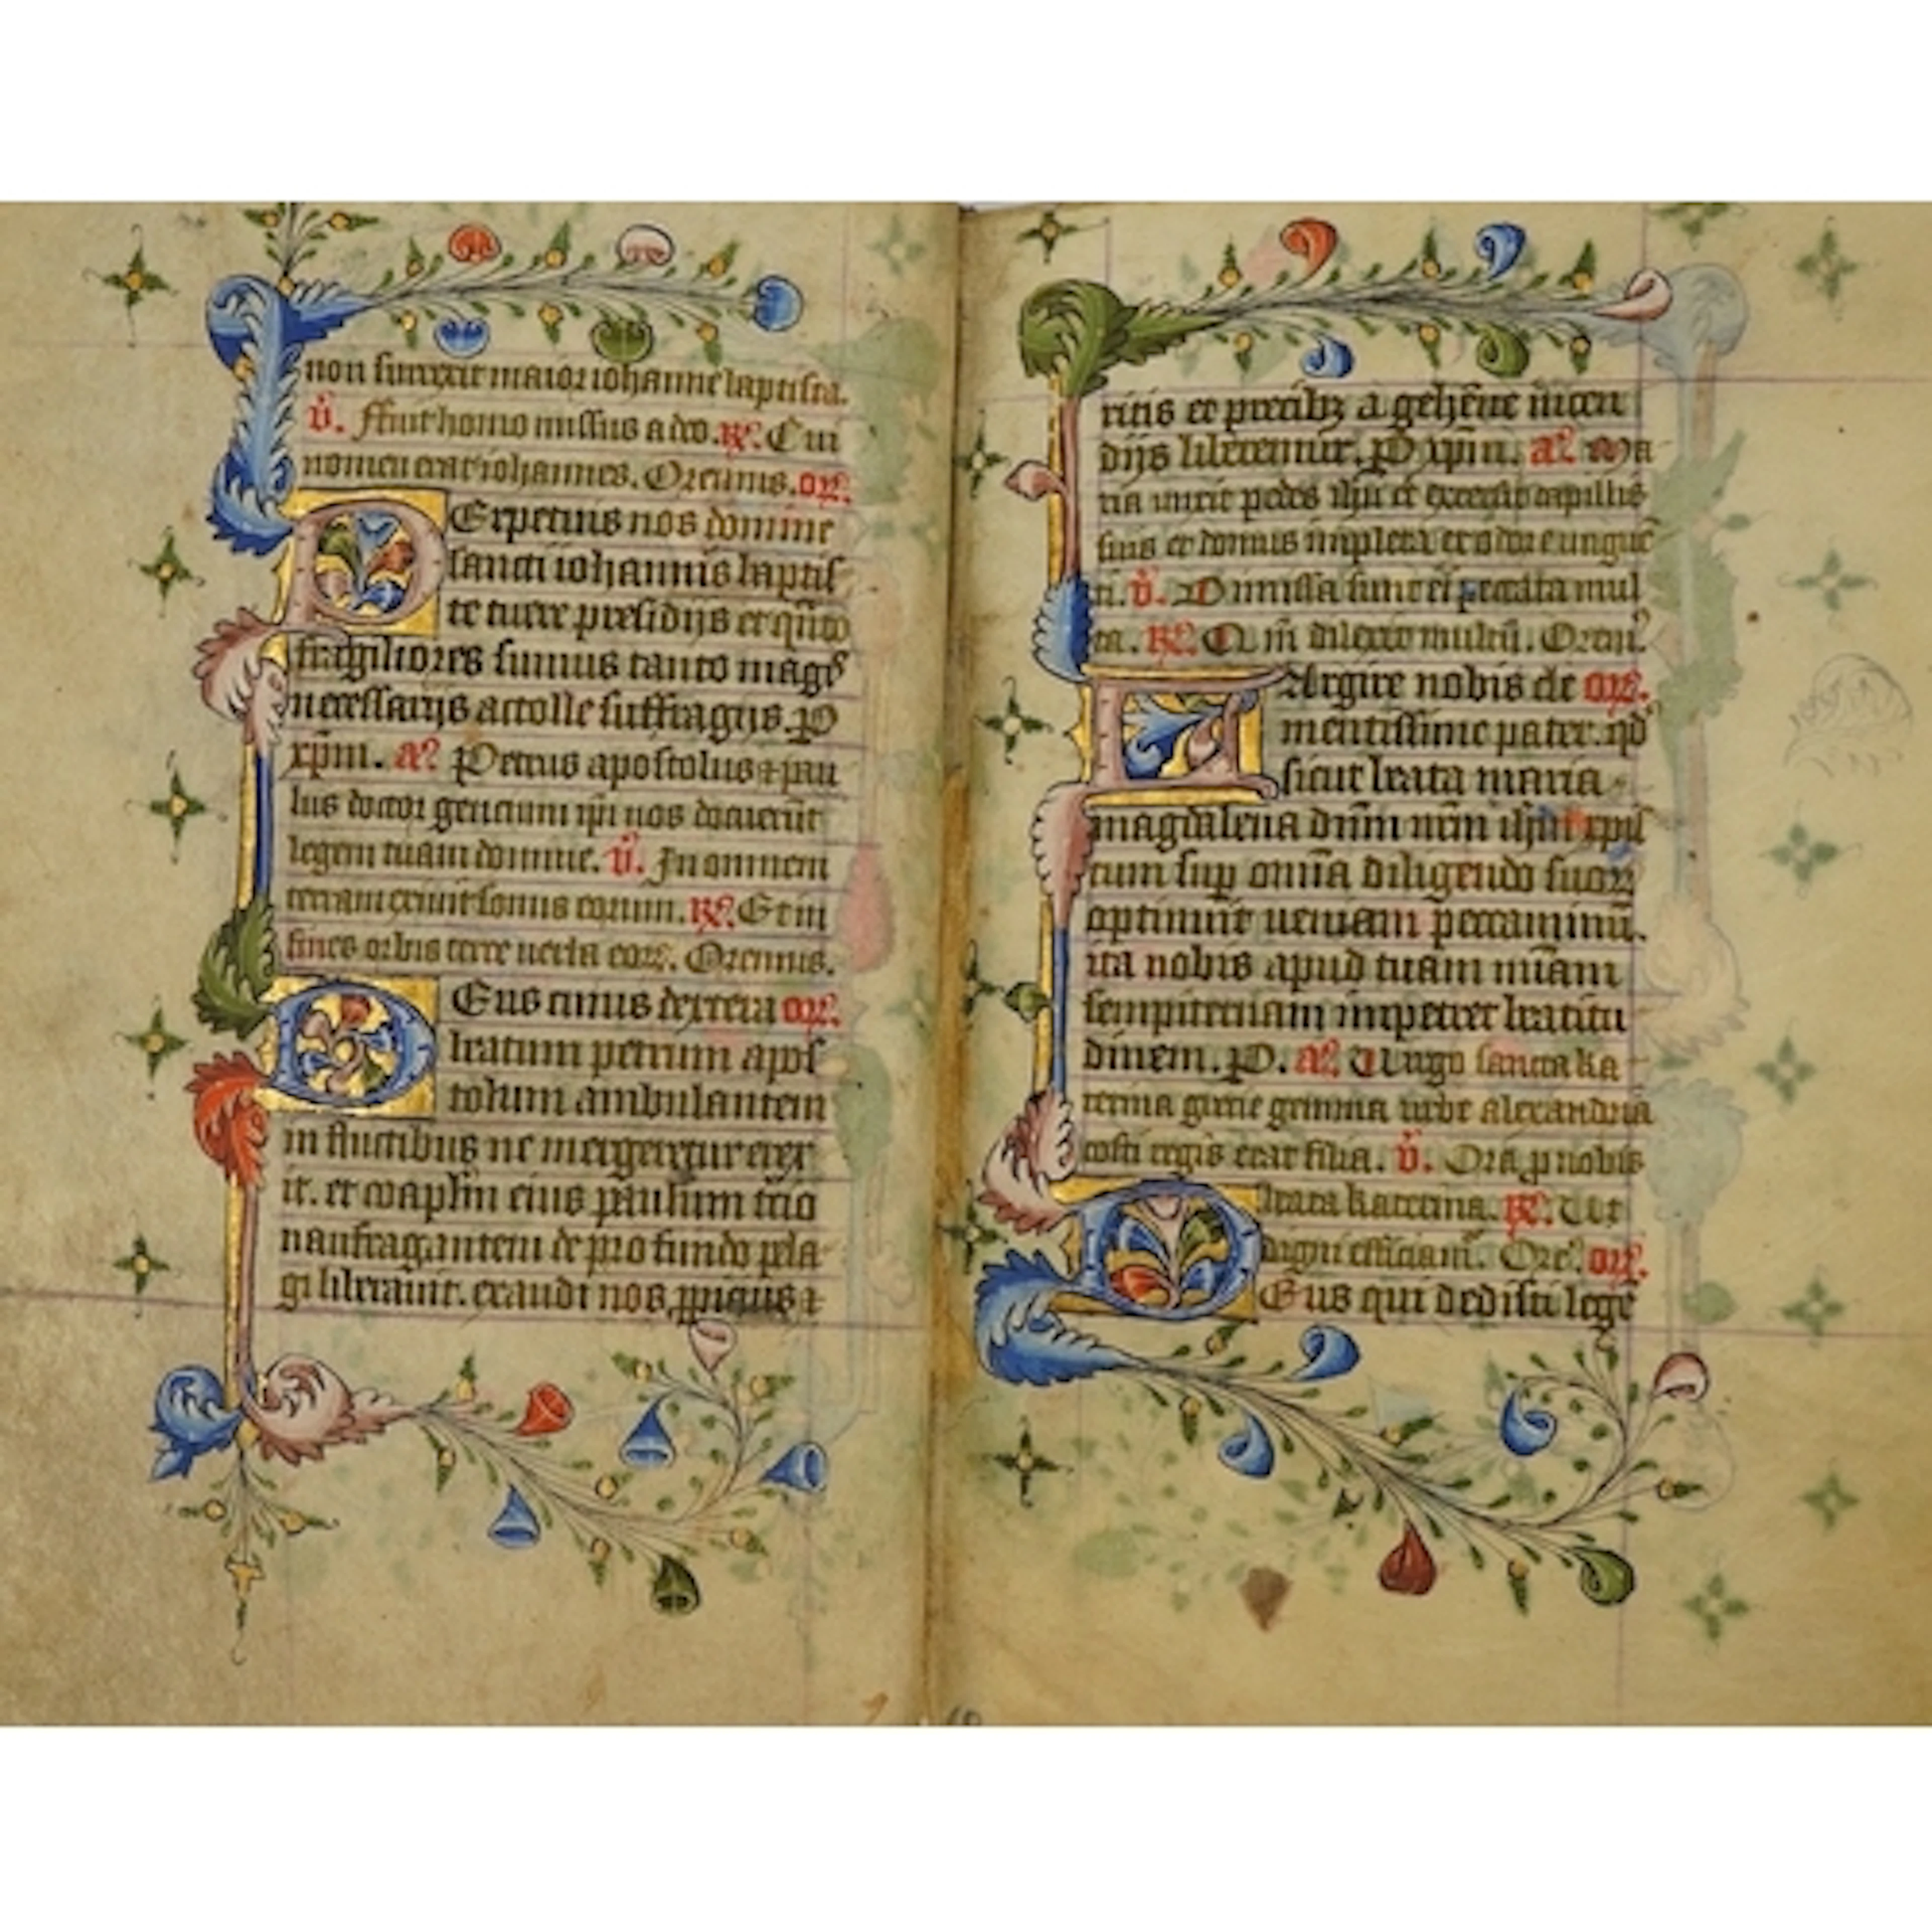 non surrexit maior iohanne baptista.
v̉. ffuit homo missus a deo. R̷. Cui
nomen erat iohannes. Oremus. or̃.
PErpetuis nos domine
sancti iohannis baptis
te tuere presidijs et qũto
fragiliores sumus tanto magꝭ
necessarijs attolle suffragijs. P
xp̃m. añ Petrus apostolus ⁊ pau
lus doctor gentium ip̃i nos docuerũt
legem tuam domine. v̉. In omnem
terram exiuit sonus eorum. R̷. Et in
fines orbis terre uerba eoꝝ. Oremus.
DEus cuius dextera or̃.
beatum petrum apos
tolum ambulantem
in fluctibus ne mergeretur erex
it. et coap̃lm eius paulum tercio
naufragantem de profundo pela
gi liberauit. exaudi nos ꝓpicius ⁊
ritis et precibꝫ a gehẽne incen
dijs liberemur. P xp̃m. añ Ma
ria unxit pedes ih̃u et extersit capillis
suis et domus impleta ex odore unguẽ
ti. v̉. Dimissa sunt ei peccata mul
ta. R̷. Qm̃ dilexit multũ. Orem̃.
LArgire nobis cle or̃.
mentissime pater. qd̾
sicut beata maria
magdalena dñm nr̃m ih̃m xp̃s
tum suꝑ om̃ia diligendo suoꝝ
optinuit ueniam peccaminũ.
ita nobis apud tuam mĩam
sempiternam impetret beatitu
dinem. P. añ Uirgo sancta ka
terina grecie gemma urbe alexandria
costi regis erat filia. v̉. Ora ꝓ nobis
beata katerina. R̷. Ut
digni efficiam̃. Ore. or̃.
DEus qui dedisti legẽ